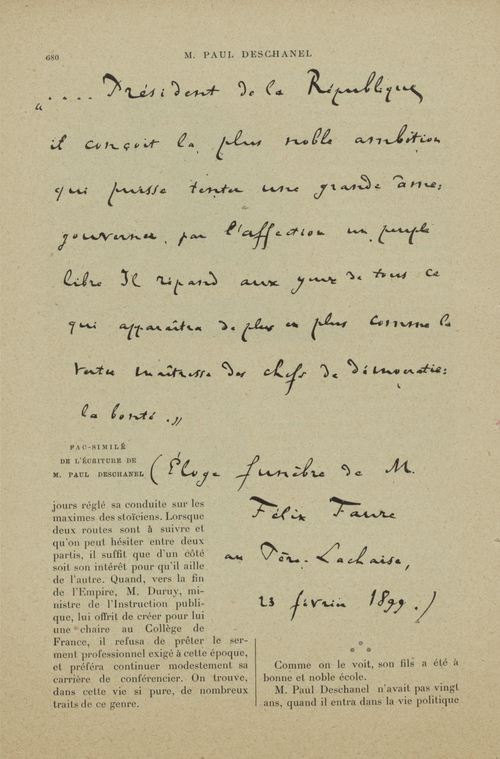 680
M. PAUL DESCHANEL
".... Président de la République,
il conçoit la plus noble ambition
qui puisse tenter une grande âme:
gouverner par l'affection un peuple
libre Il répand aux yeux de tous ce
qui apparaîtra de plus en plus comme la
vertu maîtresse des chefs de démocratie:
la bonté."
FAC-SIMILÉ
DE L'ÉCRITURE DE
M. PAUL DESCHANEL
(Éloge funèbre de M.
Félix Faure
au Père-Lachaise,
23 février 1899.)
jours réglé sa conduite sur les
maximes des stoïciens. Lorsque
deux routes sont à suivre et
qu'on peut hésiter entre deux
partis, il suffit que d'un côté
soit son intérêt pour qu'il aille
de l'autre. Quand, vers la fin
de l'Empire, M. Duruy, mi-
nistre de l'Instruction publi-
que, lui offrit de créer pour lui
une chaire au Collège de
France, il refusa de prêter le ser-
ment professionnel exigé à cette époque,
et préféra continuer modestement sa
carrière de conférencier. On trouve,
dans cette vie si pure, de nombreux
traits de ce genre.
Comme on le voit, son fils a été à
bonne et noble école.
M. Paul Deschanel n'avait pas vingt
ans, quand il entra dans la vie politique